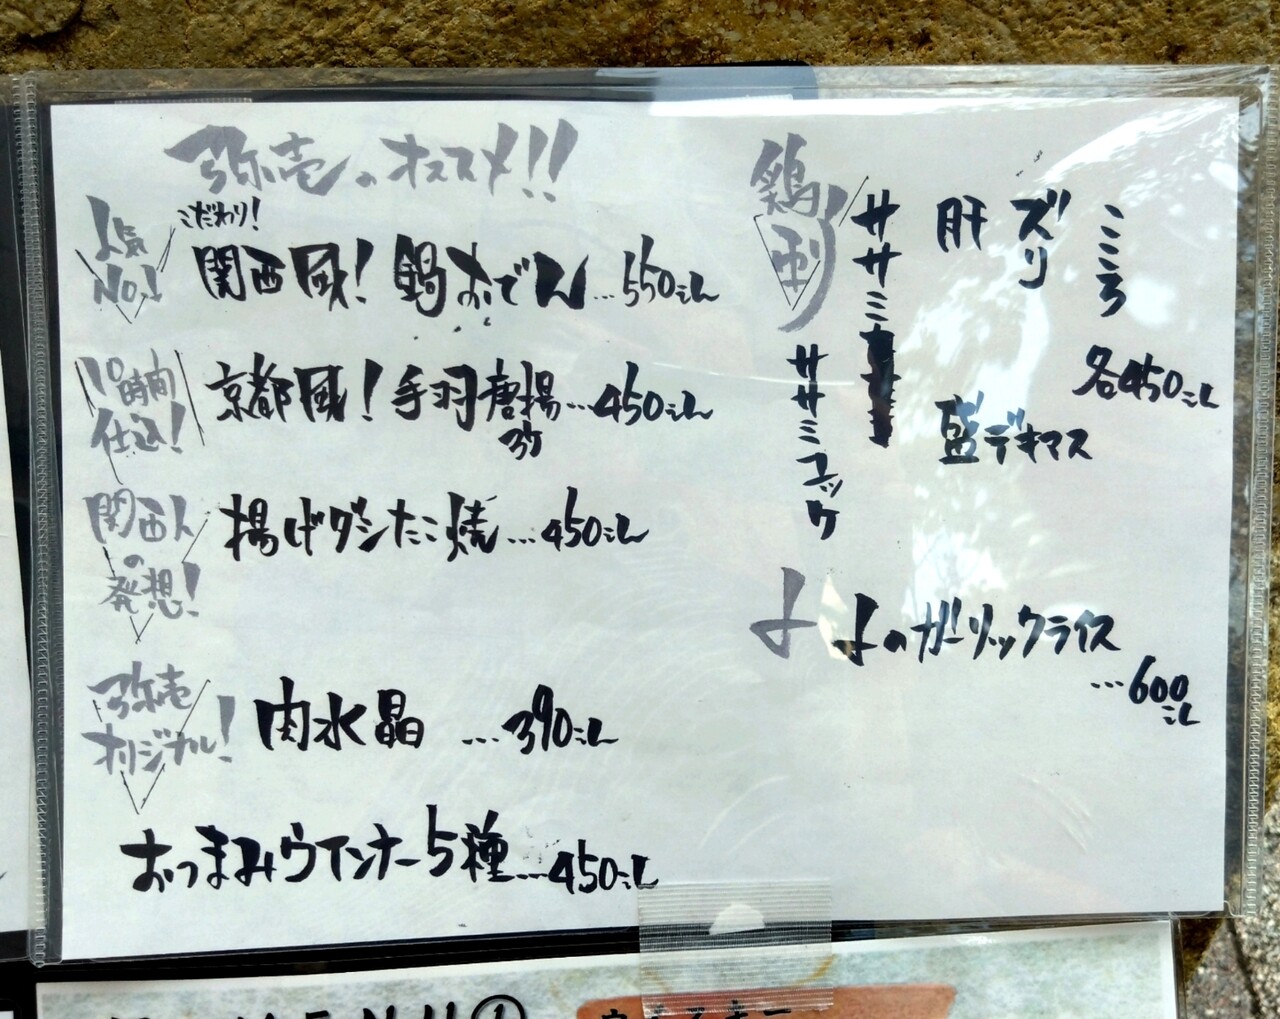 弥壱のオススメ!!
人気No.1
こだわり!
関西風!鍋おでん…550ニル
10時間仕込!
京都風!手羽唐揚…450ニル
3ケ
関西人の発想!
揚げダシたこ焼…450ニル
弥壱オリジナル!
肉水晶…390ニル
おつまみウインナー5種…450ニル
鶏刺
ササミ
肝
ズリ
こころ
ササミユッケ
各450ニル
盛デキマス
よ
よのガーリックライス
…600ニル
MENU①